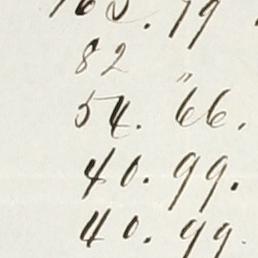 82 "
54. 66.
40. 99.
40. 99.